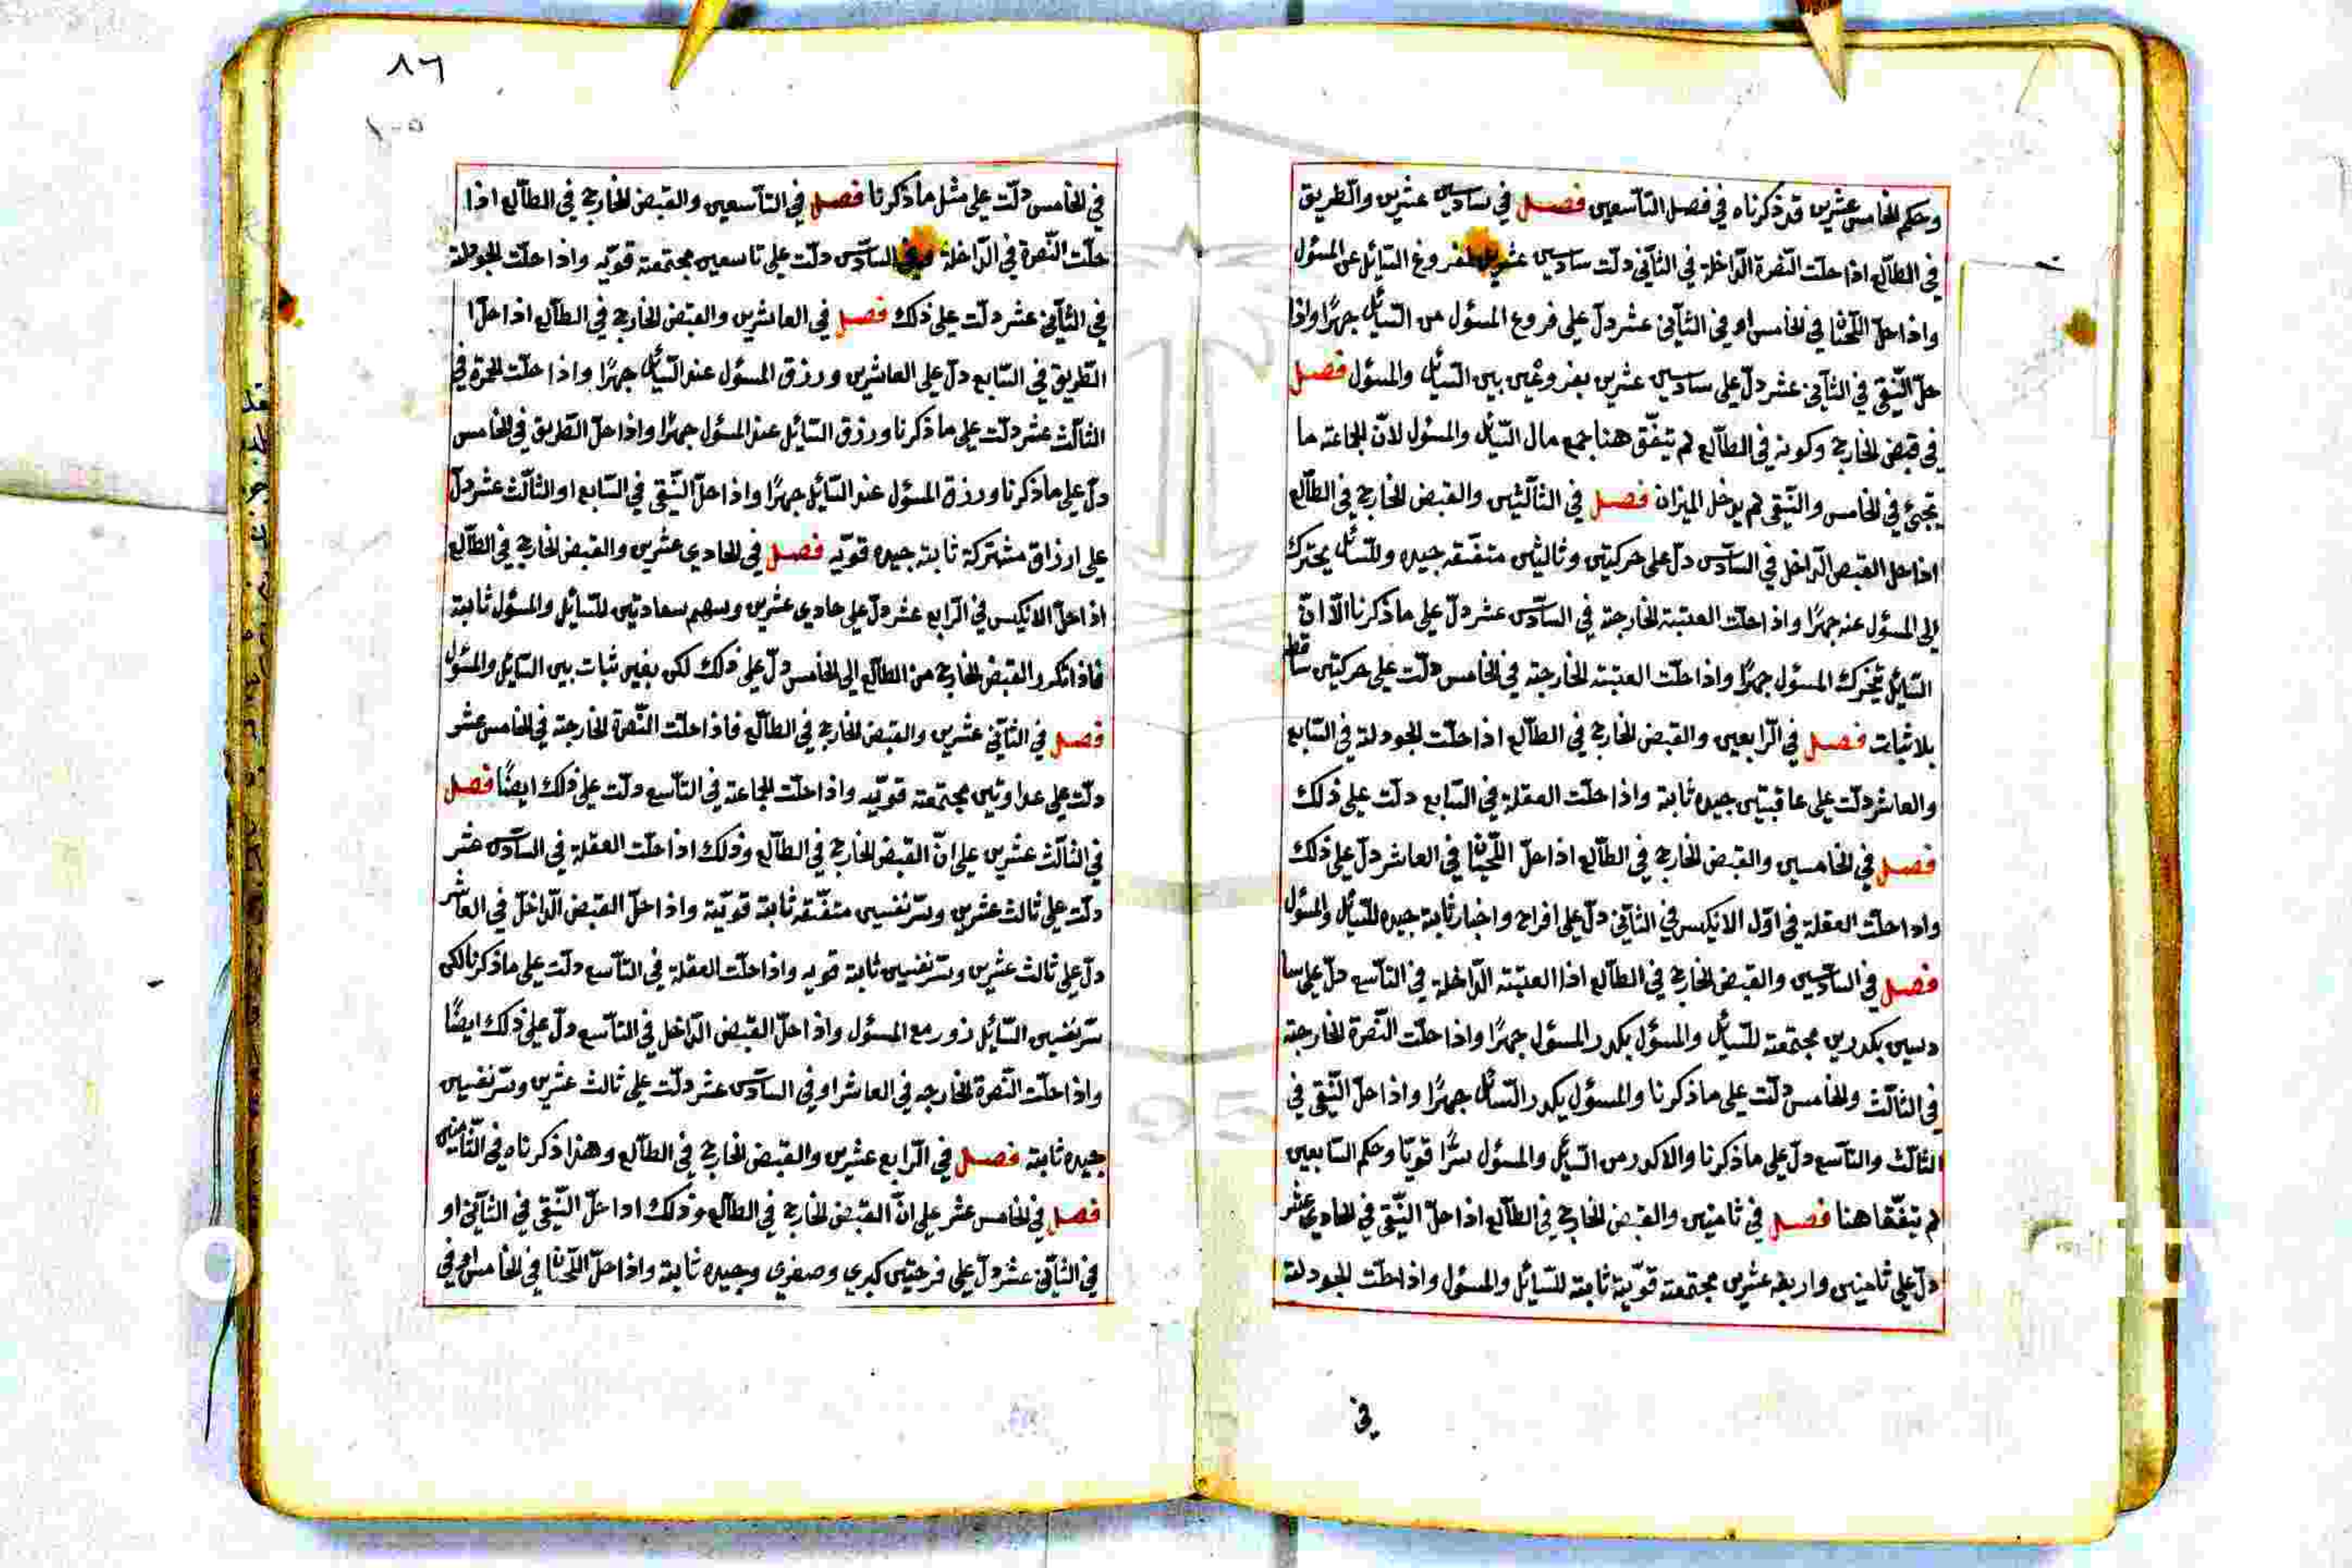 وحكم الخامس عشرين قد ذكرناه في فصل التآسعين فصل في سادسين عشرين والطريق
في الطآلع اذا حلت النصرة الداخلة في الثآني دلت سادسين عشرين لفروغ السائل عن المسئول
واذا حل اللحيانا في الخامس او في الثآني عشر دل على فروغ المسئول من السائل جهرًا واذا
حل النقي في الثآني عشر دل على سادسين عشرين بفروغين بين السائل والمسئول فصل
في قبض الخارج وكونه في الطآلع لم يتفق هنا جمع مال السائل والمسئول لان الجماعة ما
تجئ في الخامس والنقي لم يدخل الميزان فصل في الثآلثين والقبض الخارج في الطآلع
اذا حل القبض الداخل في السآدس دل على حركتين وثالثين متفقة جيده وللسائل يحترك
الى المسئول عنه جهرًا واذا حلت العتبة الخارجة في السآدس عشر دل على ما ذكرنا الا ان
السائل يتحرك المسئول جهرًا واذا حلت العتبة الخارجة في الخامس دلت على حركتين ساقط
بلا ثبات فصل في الرابعين والقبض الخارج في الطآلع اذا حلت الجودلة في السآبع
والعاشر دلت على عاقبتين جيده ثابتة واذا حلت العقلة في السآبع دلت على ذلك
فصل في الخامسين والقبض الخارج في الطآلع اذا حل اللحيانا في العاشر دل على ذلك
واذا حلت العقلة في اول الانكيس في الثآني دل على افراح واخبار ثابتة جيده للسائل والمسئول
فصل في السآدسين والقبض الخارج في الطآلع اذا العتبة الداخلة في التآسع دل على سا
دسين بكدرين مجتمعة للسائل والمسئول يكدر المسئول جهرًا واذا حلت النصرة الخارجة
في الثآلث والخامس دلت على ما ذكرنا والمسئول يكدر السائل جهرًا واذا حل النقي في
الثآلث والتآسع دل على ما ذكرنا والاكدر من السائل والمسئول سرًا قويًا وحكم السآبعين
لم يتفقا هنا فصل في ثامنين والقبض الخارج في الطآلع اذا حل النقي في الحادي عشر
دل على ثامنين واربعة عشرين مجتمعة قوية ثابتة للسائل والمسئول واذا حلت الجودلة
في
٨٦
١٠٥
في الخامس دلت على مثل ما ذكرنا فصل في التآسعين والقبض الخارج في الطآلع اذا
حلت النصرة في الداخلة وفي السآدس دلت على تاسعين مجتمعة قويه واذا حلت الجودلة
في الثآني عشر دلت على ذلك فصل في العاشرين والقبض الخارج في الطآلع اذا حلا
الطريق في السآبع دل على العاشرين ورزق المسئول عند السائل جهرًا واذا حلت الحمرة في
الثآلث عشر دلت على ما ذكرنا ورزق السائل عند المسئول جهرًا واذا حل الطريق في الخامس
دل على ما ذكرنا ورزق المسئول عند السائل جهرًا واذا حل النقي في السآبع او الثآلث عشر دل
على ارزاق مشتركة ثابتة جيده قويه فصل في الحادي عشرين والقبض الخارج في الطآلع
اذا حل الانكيس في الرابع عشر دل على حادي عشرين وسهم سعادتين للسائل والمسئول ثابتة
فاذا تكرر القبض الخارج من الطآلع الى الخامس دل على ذلك لكن بغير ثبات بين السائل والمسئول
فصل في الثآني عشرين والقبض الخارج في الطآلع فاذا حلت النصرة الخارجة في الخامس عشر
دلت على عداوتين مجتمعة قويه واذا حلت الجماعة في التآسع دلت على ذلك ايضًا فصل
في الثآلث عشرين على ان القبض الخارج في الطآلع وذلك اذا حلت العقلة في السآدس عشر
دلت على ثالث عشرين وسر نفسين متفقة ثابتة قوية واذا حل القبض الداخل في العاشر
دل على ثالث عشرين وسر نفسين ثابتة قويه واذا حلت العقلة في التآسع دلت على ما ذكرنا لكن
سر نفسين السائل زور مع المسئول واذا حل القبض الداخل في التآسع دل على ذلك ايضًا
واذا حلت النصرة الخارجه في العاشر او في السآدس عشر دلت على ثالث عشرين وسر نفسين
جيده ثابتة فصل في الرابع عشرين والقبض الخارج في الطآلع وهذا ذكرناه في الثآمنين
فصل في الخامس عشر على ان القبض الخارج في الطآلع وذلك اذا حل النقي في الثآني او
في الثآني عشر دل على فرحتين كبرى وصغرى وجيده ثابتة واذا حل اللحيانا في الخامس او في